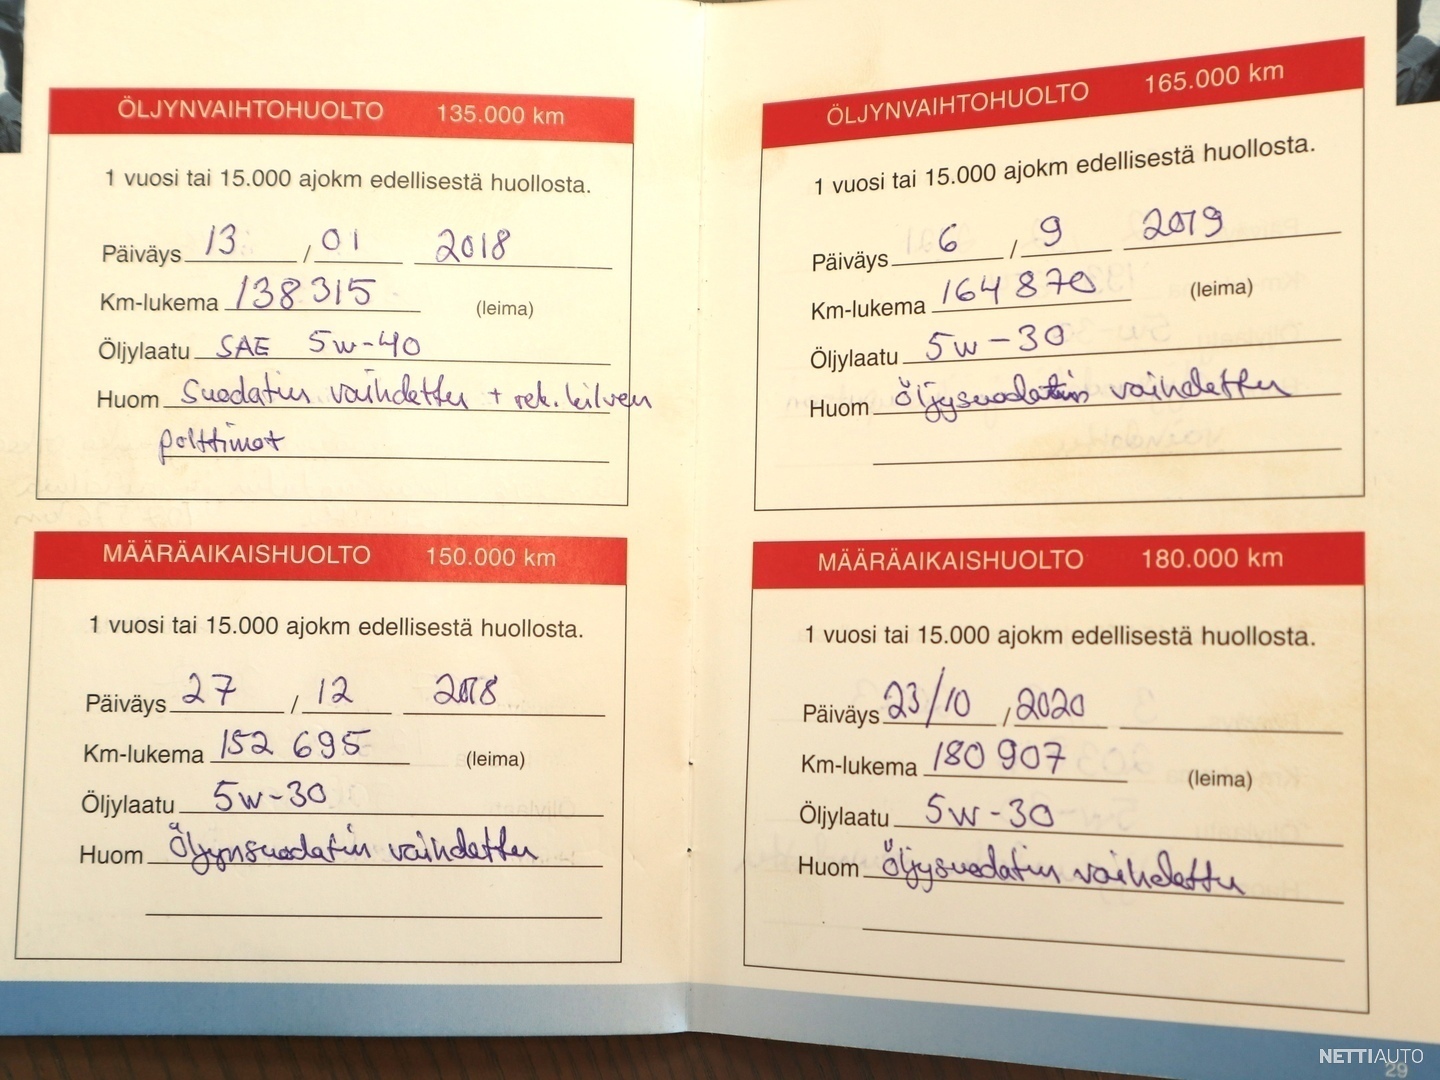 ÖLJYNVAIHTOHUOLTO 135.000 km
1 vuosi tai 15.000 ajokm edellisestä huollosta.
Päiväys 13 / 01 2018
Km-lukema 138315 (leima)
Öljylaatu SAE 5w-40
Huom Suodatin vaihdettu + rek. kilven
polttimot
MÄÄRÄAIKAISHUOLTO 150.000 km
1 vuosi tai 15.000 ajokm edellisestä huollosta.
Päiväys 27 / 12 2018
Km-lukema 152 695 (leima)
Öljylaatu 5w-30
Huom Öljynsuodatin vaihdettu
ÖLJYNVAIHTOHUOLTO 165.000 km
1 vuosi tai 15.000 ajokm edellisestä huollosta.
Päiväys 6 / 9 2019
Km-lukema 164 870 (leima)
Öljylaatu 5w-30
Huom Öljysuodatin vaihdettu
MÄÄRÄAIKAISHUOLTO 180.000 km
1 vuosi tai 15.000 ajokm edellisestä huollosta.
Päiväys 23/10 / 2020
Km-lukema 180 907 (leima)
Öljylaatu 5w-30
Huom Öljysuodatin vaihdettu
NETTIAUTO
29